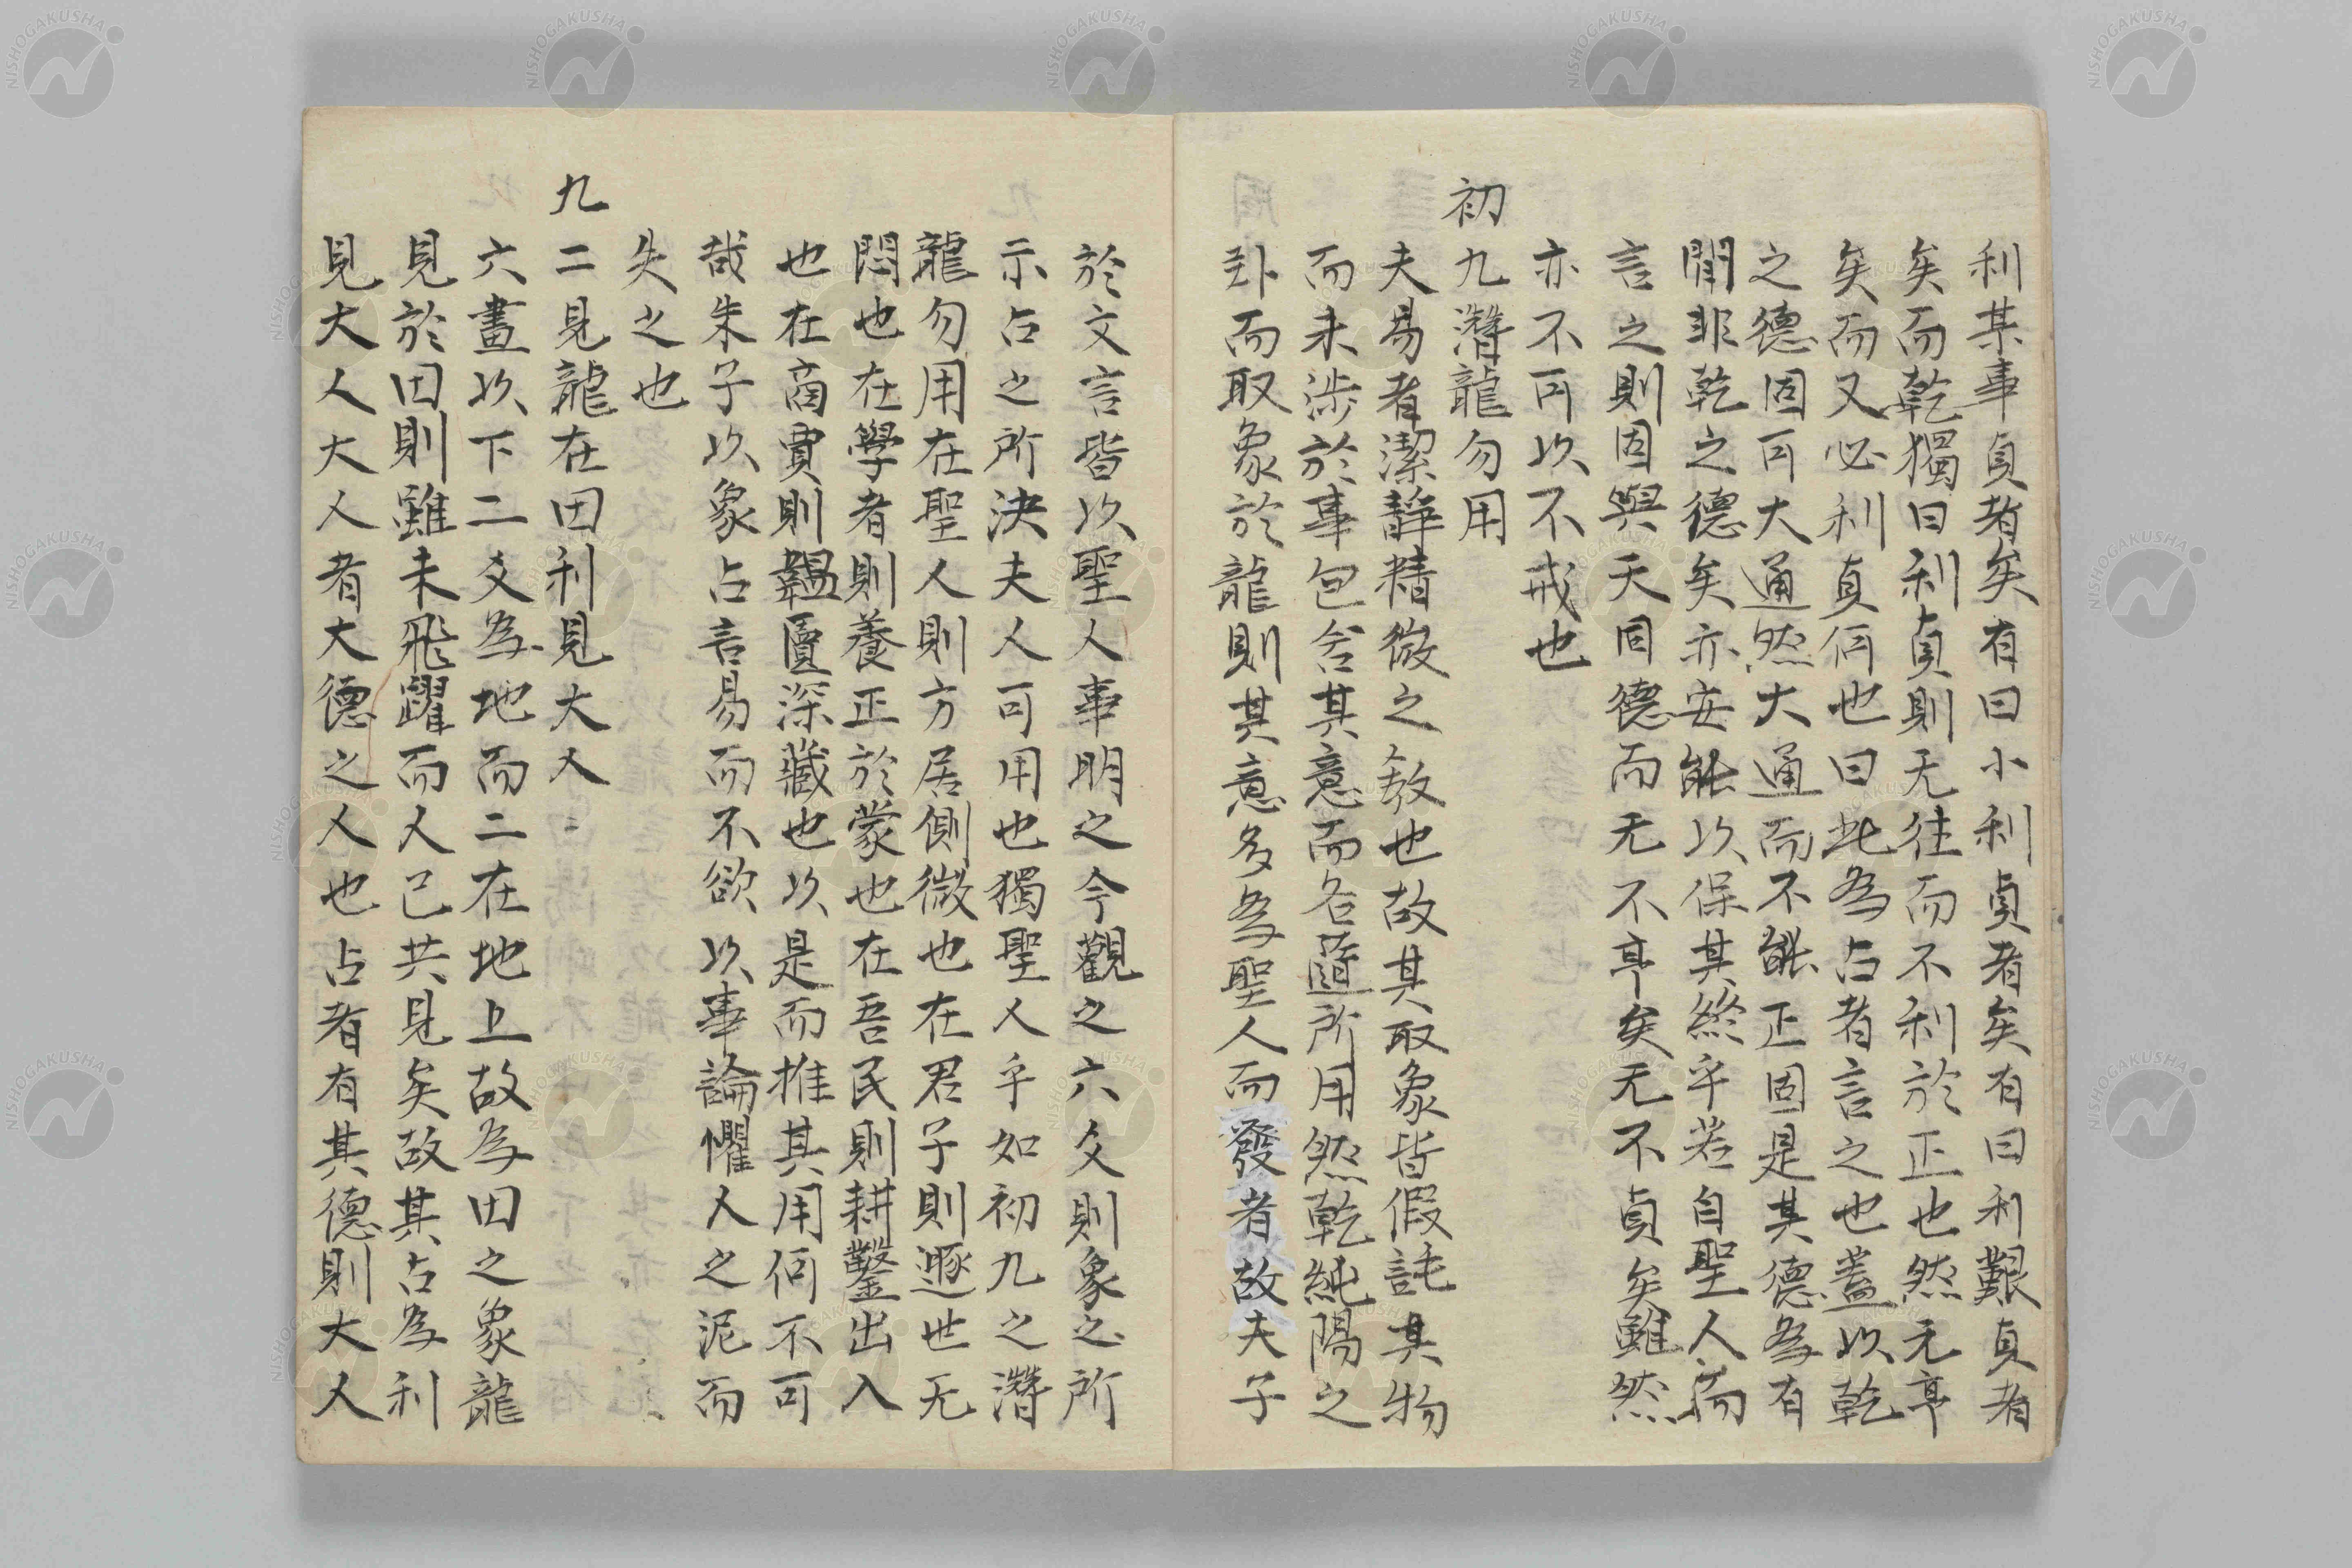 利某事貞者矣有曰小利貞者矣有曰利艱貞者
矣而乾獨曰利貞則无往而不利於正也然元亨
矣而又必利貞何也曰此為占者言之也蓋以乾
之德固可大通然大通而不能正固是其德為有
間非乾之德矣亦安能以保其終乎若自聖人而
言之則固與天同德而无不亨矣无不貞矣雖然
亦不可以不戒也
初九潛龍勿用
夫易者潔靜精微之教也故其取象皆假託其物
而未涉於事包含其意而各隨所用然乾純陽之
卦而取象於龍則其意多為聖人而發者故夫子
於文言皆以聖人事明之今觀之六爻則象之所
示占之所決夫人可用也獨聖人乎如初九之潛
龍勿用在聖人則方居側微也在君子則遯世无
悶也在學者則養正於蒙也在吾民則耕鑿出入
也在商賈則韞匵深藏也以是而推其用何不可
哉朱子以象占言易而不欲以事論懼人之泥而
失之也
九二見龍在田利見大人
六畫以下二爻為地而二在地上故為田之象龍
見於田則雖未飛躍而人已共見矣故其占為利
見大人大人者大德之人也占者有其德則大人
NISHOGAKUSHA